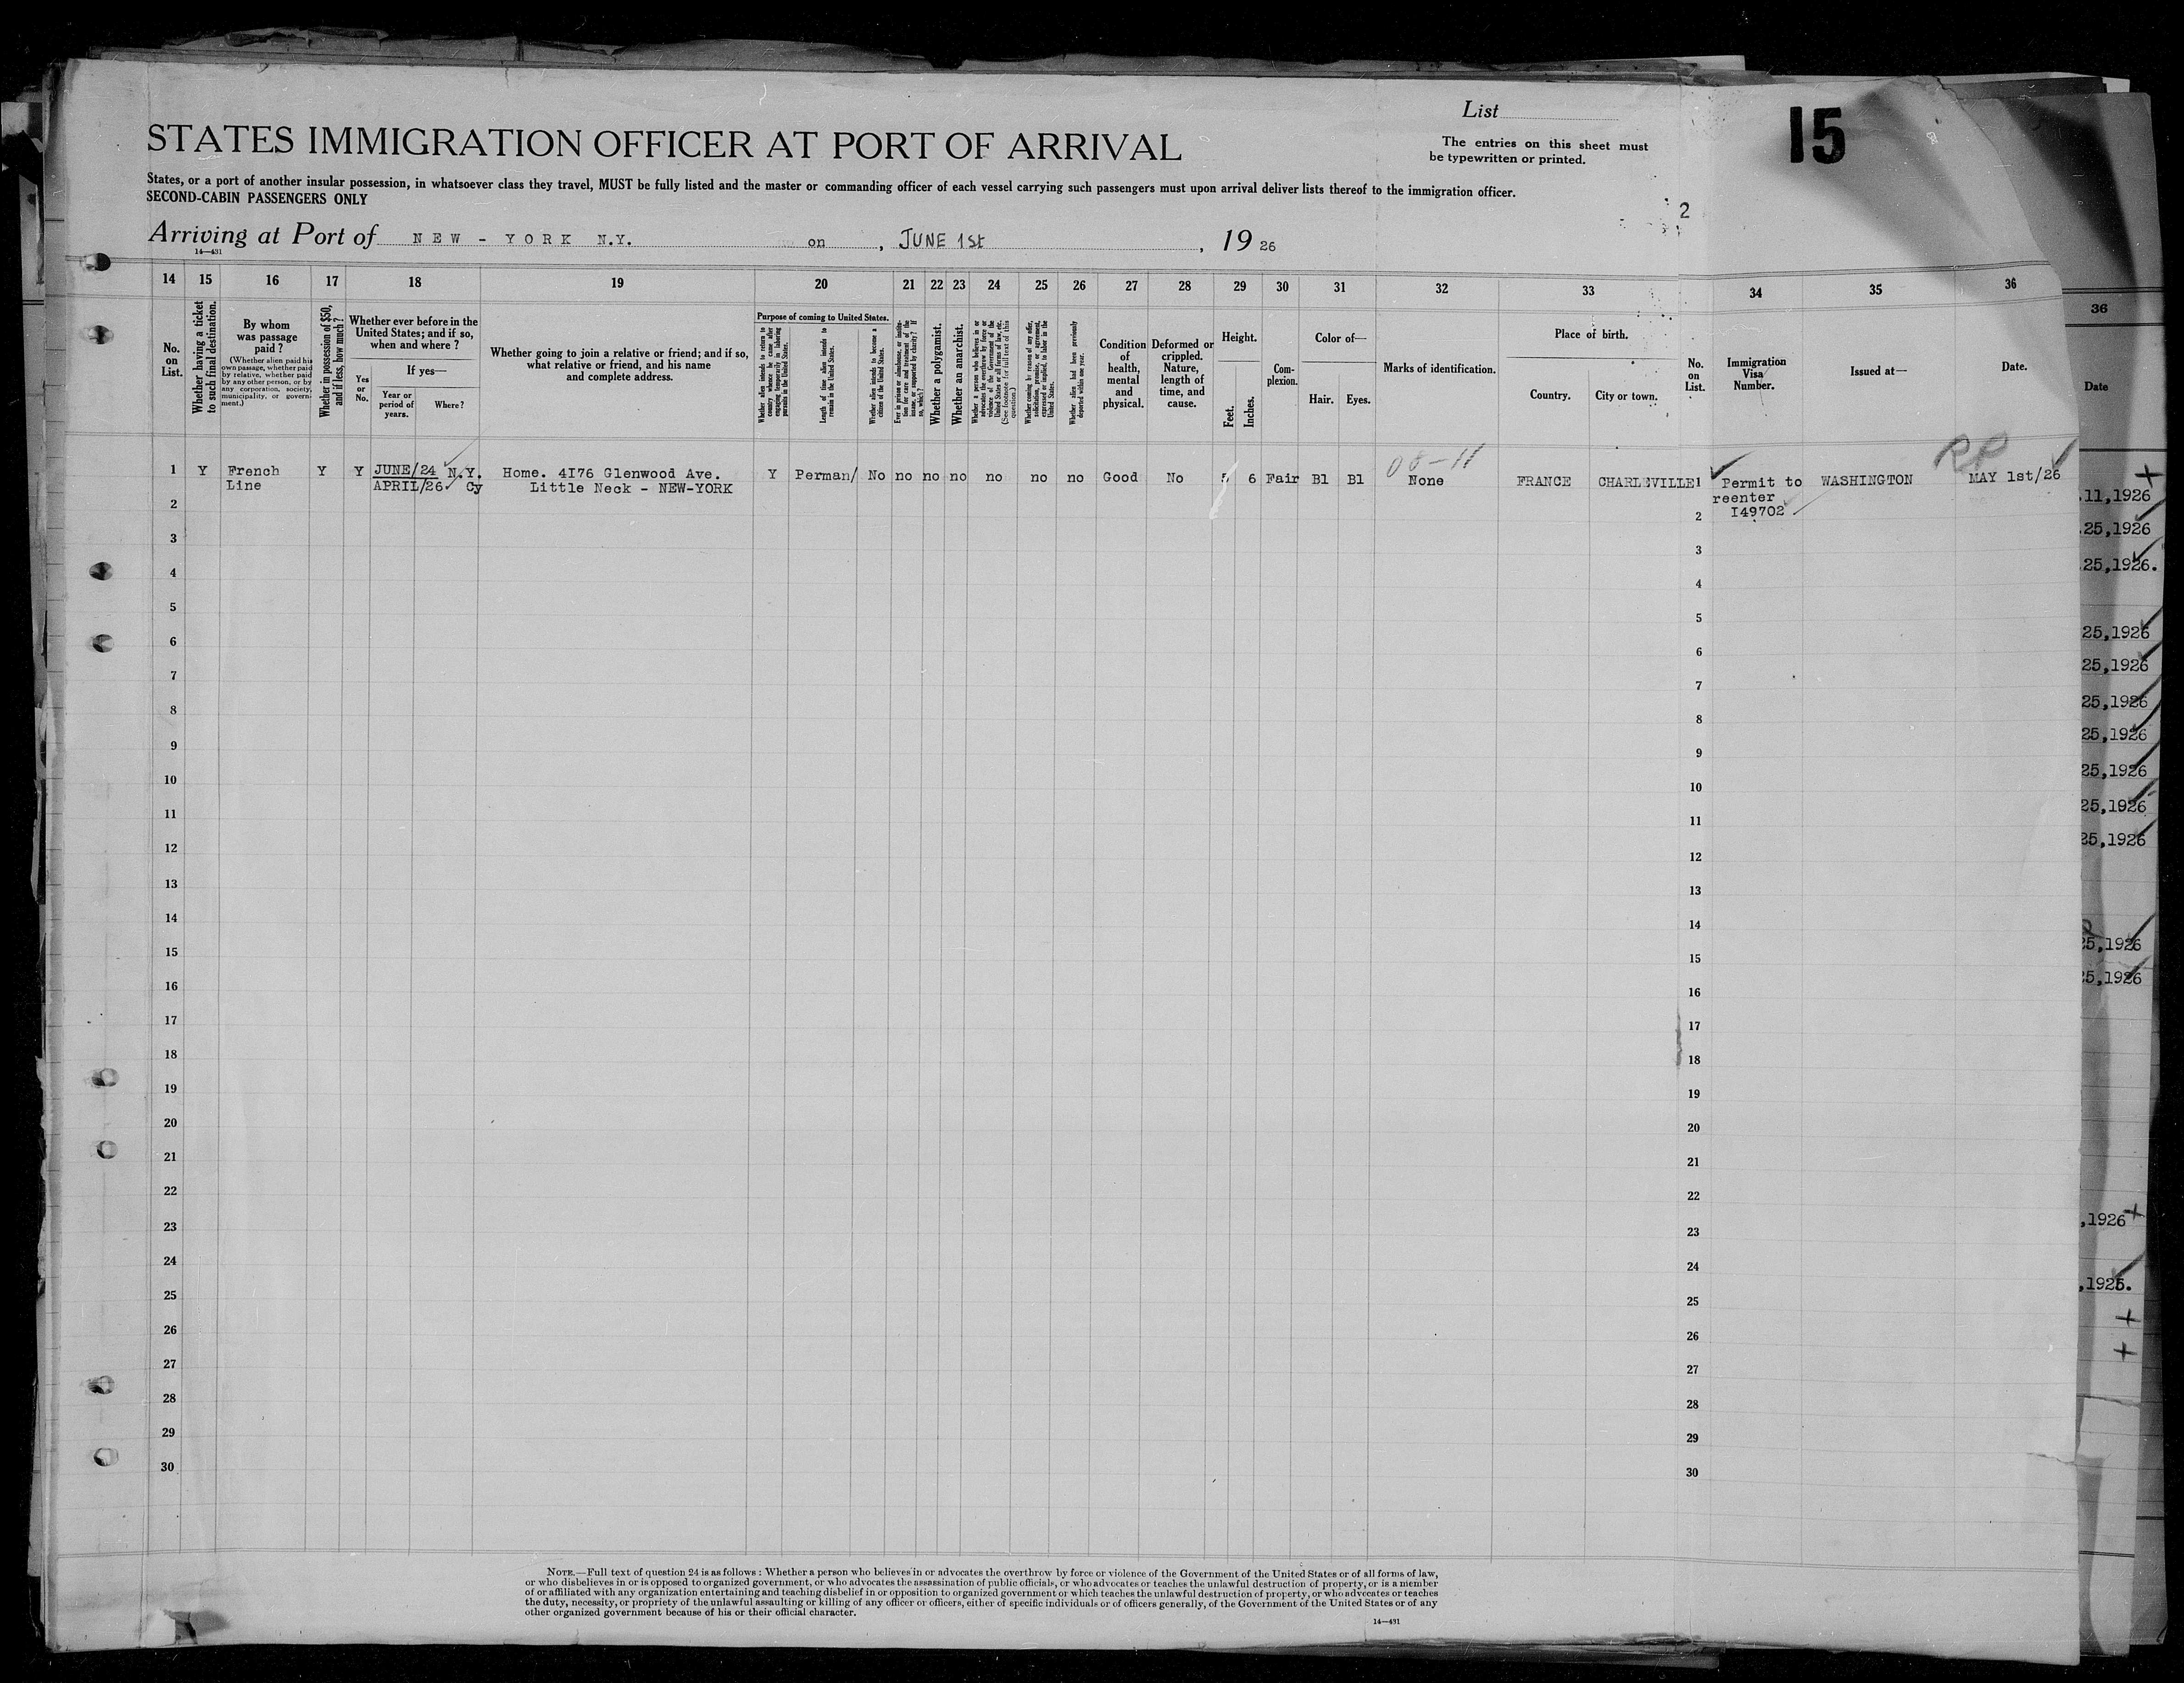 List
15
STATES IMMIGRATION OFFICER AT PORT OF ARRIVAL
The entries on this sheet must
be typewritten or printed.
States, or a port of another insular possession, in whatsoever class they travel, MUST be fully listed and the master or commanding officer of each vessel carrying such passengers must upon arrival deliver lists thereof to the immigration officer.
SECOND-CABIN PASSENGERS ONLY
2
Arriving at Port of NEW - YORK N.Y. on , JUNE 1st , 19 26
14—431
14 15 16 17 18 19 20 21 22 23 24 25 26 27 28 29 30 31 32 33 34 35 36
36
No. on List.
Whether having a ticket to such final destination.
By whom was passage paid ?
(Whether alien paid his own passage, whether paid by relative, whether paid by any other person, or by any corporation, society, municipality, or government.)
Whether in possession of $50, and if less, how much ?
Whether ever before in the United States; and if so, when and where ?
Yes or No.
If yes—
Year or period of years.
Where?
Whether going to join a relative or friend; and if so, what relative or friend, and his name and complete address.
Purpose of coming to United States.
Whether alien intends to return to country whence he came after engaging temporarily in laboring pursuits in the United States.
Length of time alien intends to remain in the United States.
Whether alien intends to become a citizen of the United States.
Ever in prison or almshouse, or institution for care and treatment of the insane, or supported by charity? If so, which?
Whether a polygamist.
Whether an anarchist.
Whether a person who believes in or advocates the overthrow by force or violence of the Government of the United States or of all forms of law, etc. (See footnote for full text of this question.)
Whether coming by reason of any offer, solicitation, promise, or agreement, expressed or implied, to labor in the United States.
Whether alien had been previously deported within one year.
Condition of health, mental and physical.
Deformed or crippled. Nature, length of time, and cause.
Height.
Feet.
Inches.
Complexion.
Color of—
Hair.
Eyes.
Marks of identification.
Place of birth.
Country.
City or town.
No. on List.
Immigration Visa Number.
Issued at—
Date.
Date
08-11
RP
1 Y French Y Y JUNE/24 N.Y. Home. 4I76 Glenwood Ave. Y Perman/ No no no no no no no Good No 5 6 Fair Bl Bl None FRANCE CHARLEVILLE 1 Permit to WASHINGTON MAY 1st/26
Line APRIL/26 Cy Little Neck - NEW-YORK reenter
I49702
2 2
3 3
4 4
5 5
6 6
7 7
8 8
9 9
10 10
11 11
12 12
13 13
14 14
15 15
16 16
17 17
18 18
19 19
20 20
21 21
22 22
23 23
24 24
25 25
26 26
27 27
28 28
29 29
30 30
.11,1926
.25,1926
.25,1926.
25,1926
25,1926
25,1926
25,1926
25,1926
25,1926
25,1926
25,1926
25,1926
,1926
,1925.
NOTE.—Full text of question 24 is as follows : Whether a person who believes in or advocates the overthrow by force or violence of the Government of the United States or of all forms of law,
or who disbelieves in or is opposed to organized government, or who advocates the assassination of public officials, or who advocates or teaches the unlawful destruction of property, or is a member
of or affiliated with any organization entertaining and teaching disbelief in or opposition to organized government or which teaches the unlawful destruction of property, or who advocates or teaches
the duty, necessity, or propriety of the unlawful assaulting or killing of any officer or officers, either of specific individuals or of officers generally, of the Government of the United States or of any
other organized government because of his or their official character.
14—431